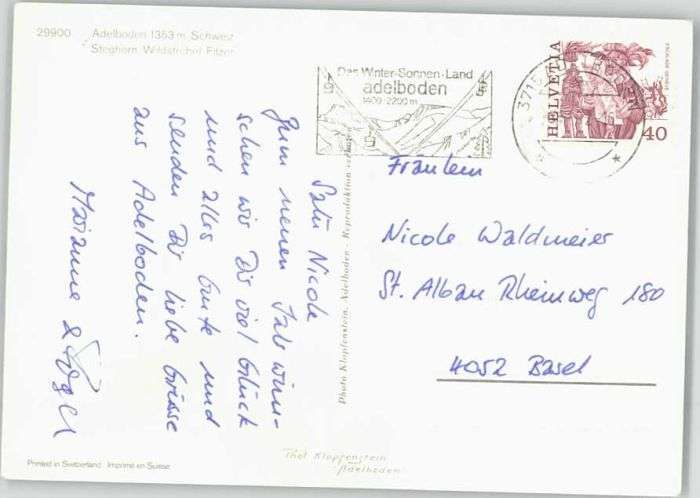 29900 Adelboden 1353 m, Schweiz
Steghorn, Wildstrubel, Fitzer
Das Winter-Sonnen-Land
adelboden
1400-2200 m
3715
HELVETIA
40
Salü Nicole
Zum neuen Jahr wün-
schen wir Dir viel Glück
und alles Gute und
senden Dir liebe Grüsse
aus Adelboden.
Marianne &
Photo Klopfenstein, Adelboden - Reproduktion verboten
Fräulein
Nicole Waldmeier
St. Alban Rheinweg 180
4052 Basel
Printed in Switzerland Imprimé en Suisse
Phot Klopfenstein
Adelboden